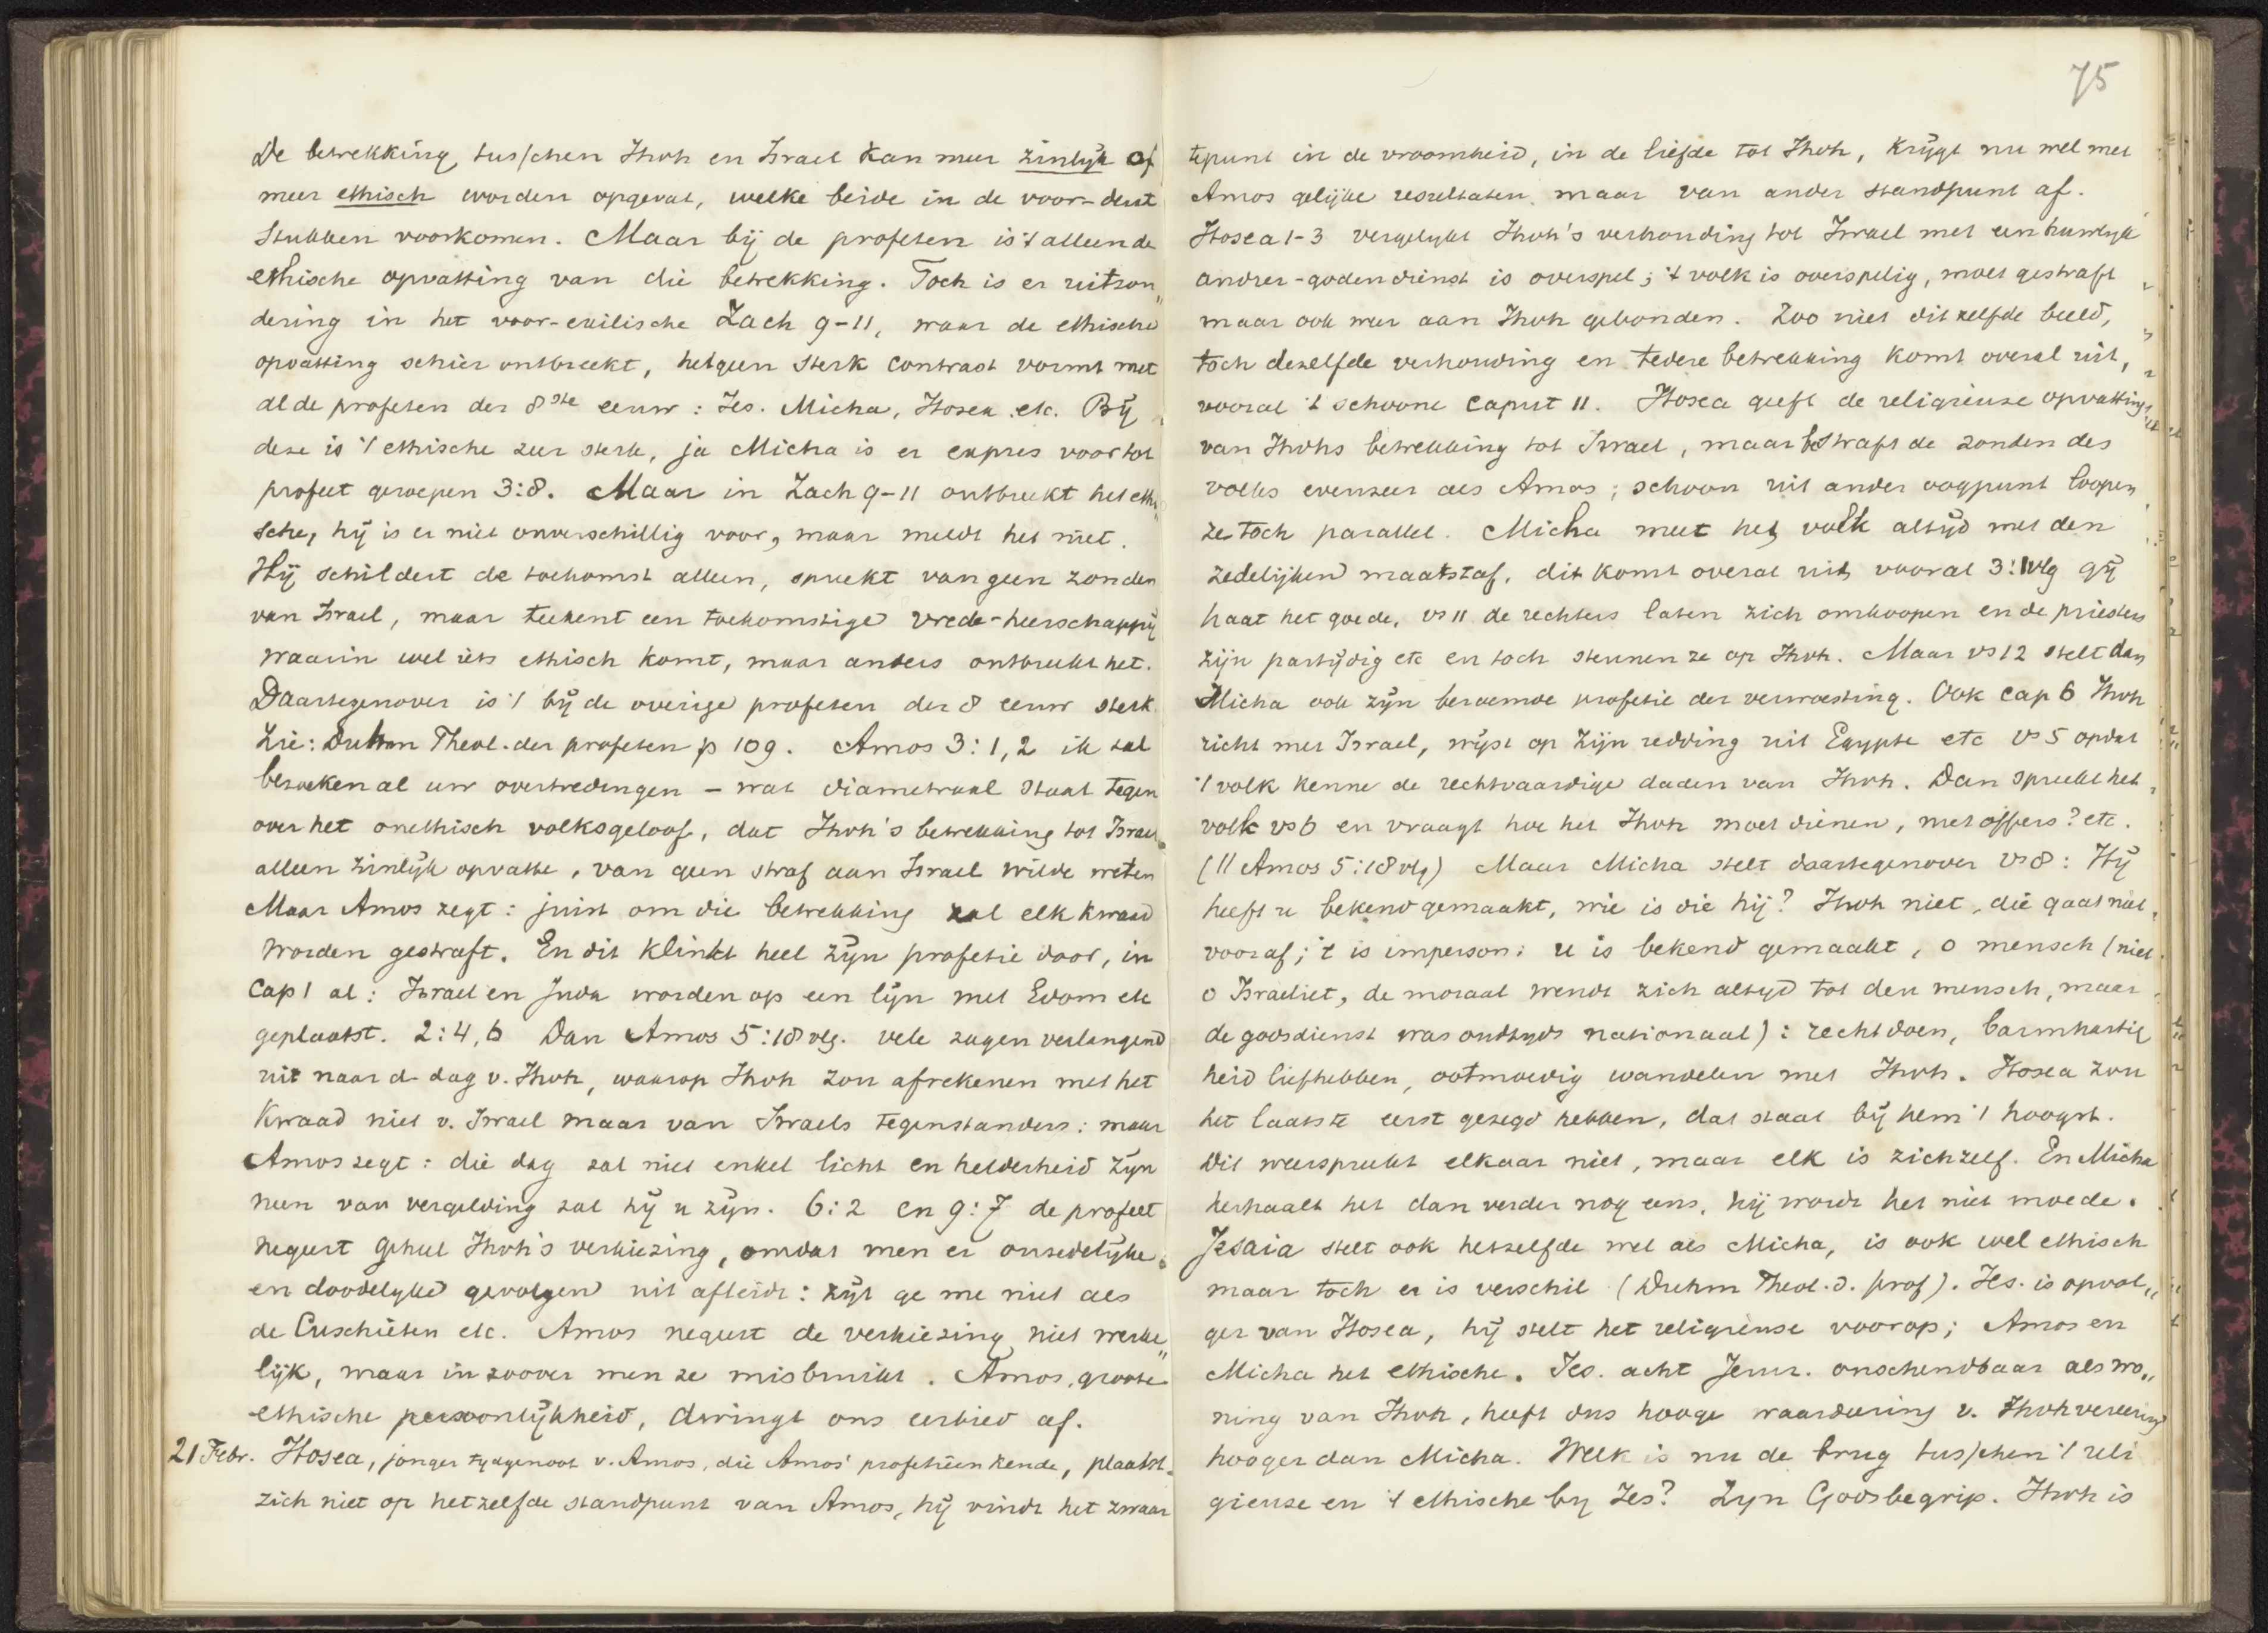 De betrekking tusschen Jhvh en Israel kan meer zinlijk of
meer ethisch worden opgevat, welke beide in de voor-deut
stukken voorkomen. Maar bij de profeten is 't alleen de
ethische opvatting van die betrekking. Toch is er uitzon„
dering in het voor-exilische Zach 9-11, waar de ethische
opvatting schier ontbreekt, hetgeen sterk contrast vormt met
al de profeten der 8ste eeuw: Jes. Micha, Hosea etc. Bij
deze is 't ethische zeer sterk, ja Micha is er expres voor tot
profeet geroepen 3:8. Maar in Zach 9-11 ontbreekt het ethi„
sche, hij is er niet onverschillig voor, maar meldt het niet.
Hij schildert de toekomst alleen, spreekt van geen zonden
van Israel, maar teekent een toekomstige vrede-heerschappij
waarin wel iets ethisch komt, maar anders ontbreekt het.
Daartegenover is 't bij de overige profeten der 8 eeuw sterk.
Zie: Duhm Theol. der profeten p 109. Amos 3:1,2 ik zal
bezoeken al uw overtredingen – wat diametraal staat tegen
over het onethisch volksgeloof, dat Jhvh's betrekking tot Israel
alleen zinlijk opvatte, van geen straf aan Israel wilde weten
Maar Amos zegt: juist om die betrekking zal elk kwaad
worden gestraft. En dit klinkt heel zijn profetie door, in
cap 1 al: Israel en Juda worden op een lijn met Edom etc
geplaatst. 2:4,6 Dan Amos 5:18 vlg. vele zagen verlangend
uit naar d dag v. Jhvh, waarop Jhvh zou afrekenen met het
kwaad niet v. Israel maar van Israels tegenstanders: maar
Amos zegt: die dag zal niet enkel licht en helderheid zijn
neen van vergelding zal hij u zijn. 6:2 en 9:7 de profeet
negeert geheel Jhvh's verkiezing, omdat men er onzedelijke
en doodelijke gevolgen uit afleidt: zijt ge me niet als
de Cuschieten etc. Amos negeert de verkiezing niet werke„
lijk, maar in zoover men ze misbruikt. Amos, groote
ethische persoonlijkheid, dwingt ons eerbied af.
21 Febr. Hosea, jonger tydgenoot v. Amos, die Amos' profetiëen kende, plaatst
zich niet op hetzelfde standpunt van Amos, hij vindt het zwaar
75
tepunt in de vroomheid, in de liefde tot Jhvh, krijgt nu wel met
Amos gelijke resultaten, maar van ander standpunt af.
Hosea 1-3 vergelykt Jhvh's verhouding tot Israel met een huwlyk
andrer-godendienst is overspel; 't volk is overspelig, moet gestraft
maar ook weer aan Jhvh gebonden. Zoo niet ditzelfde beeld,
toch dezelfde verhouding en tedere betrekking komt overal uit,
vooral 't schoone caput 11. Hosea geeft de religieuze opvatting
van Jhvhs betrekking tot Israel, maar bestraft de zonden des
volks evenzeer als Amos; schoon uit ander oogpunt loopen
ze toch parallel. Micha meet het volk altijd met den
zedelijken maatstaf, dit komt overal uit, vooral 3:1 vlg gij
haat het goede, vs 11 de rechters laten zich omkoopen en de priesters
zijn partijdig etc en toch steunen ze op Jhvh. Maar vs 12 stelt dan
Micha ook zijn beroemde profetie der verwoesting. Ook cap 6 Jhvh
richt met Israel, wijst op zijn redding uit Egypte etc vs 5 opdat
't volk kenne de rechtvaardige daden van Jhvh. Dan spreekt het
volk vs 6 en vraagt hoe het Jhvh moet dienen, met offers? etc.
(|| Amos 5:18 vlg) Maar Micha stelt daartegenover vs 8: Hij
heeft u bekend gemaakt, wie is die hij? Jhvh niet, die gaat niet
vooraf; 't is imperson: u is bekend gemaakt, o mensch (niet
o Israeliet, de moraal wendt zich altyd tot den mensch, maar
de godsdienst was oudtyds nationaal): recht doen, barmhartig
heid liefhebben, ootmoedig wandelen met Jhvh. Hosea zou
het laatste eerst gezegd hebben, dat staat bij hem 't hoogst.
Dit weerspreekt elkaar niet, maar elk is zichzelf. En Micha
herhaalt het dan verder nog eens, hij wordt het niet moede.
Jesaia stelt ook hetzelfde wel als Micha, is ook wel ethisch
maar toch er is verschil (Duhm Theol. d. prof). Jes. is opvol„
ger van Hosea, hij stelt het religieuse voorop; Amos en
Micha het ethische. Jes. acht Jeruz. onschendbaar als wo„
ning van Jhvh, heeft dus hooge waardeering v. Jhvhvereering
hooger dan Micha. Welk is nu de brug tusschen 't reli
gieuze en 't ethische by Jes? Zyn Godsbegrip. Jhvh is